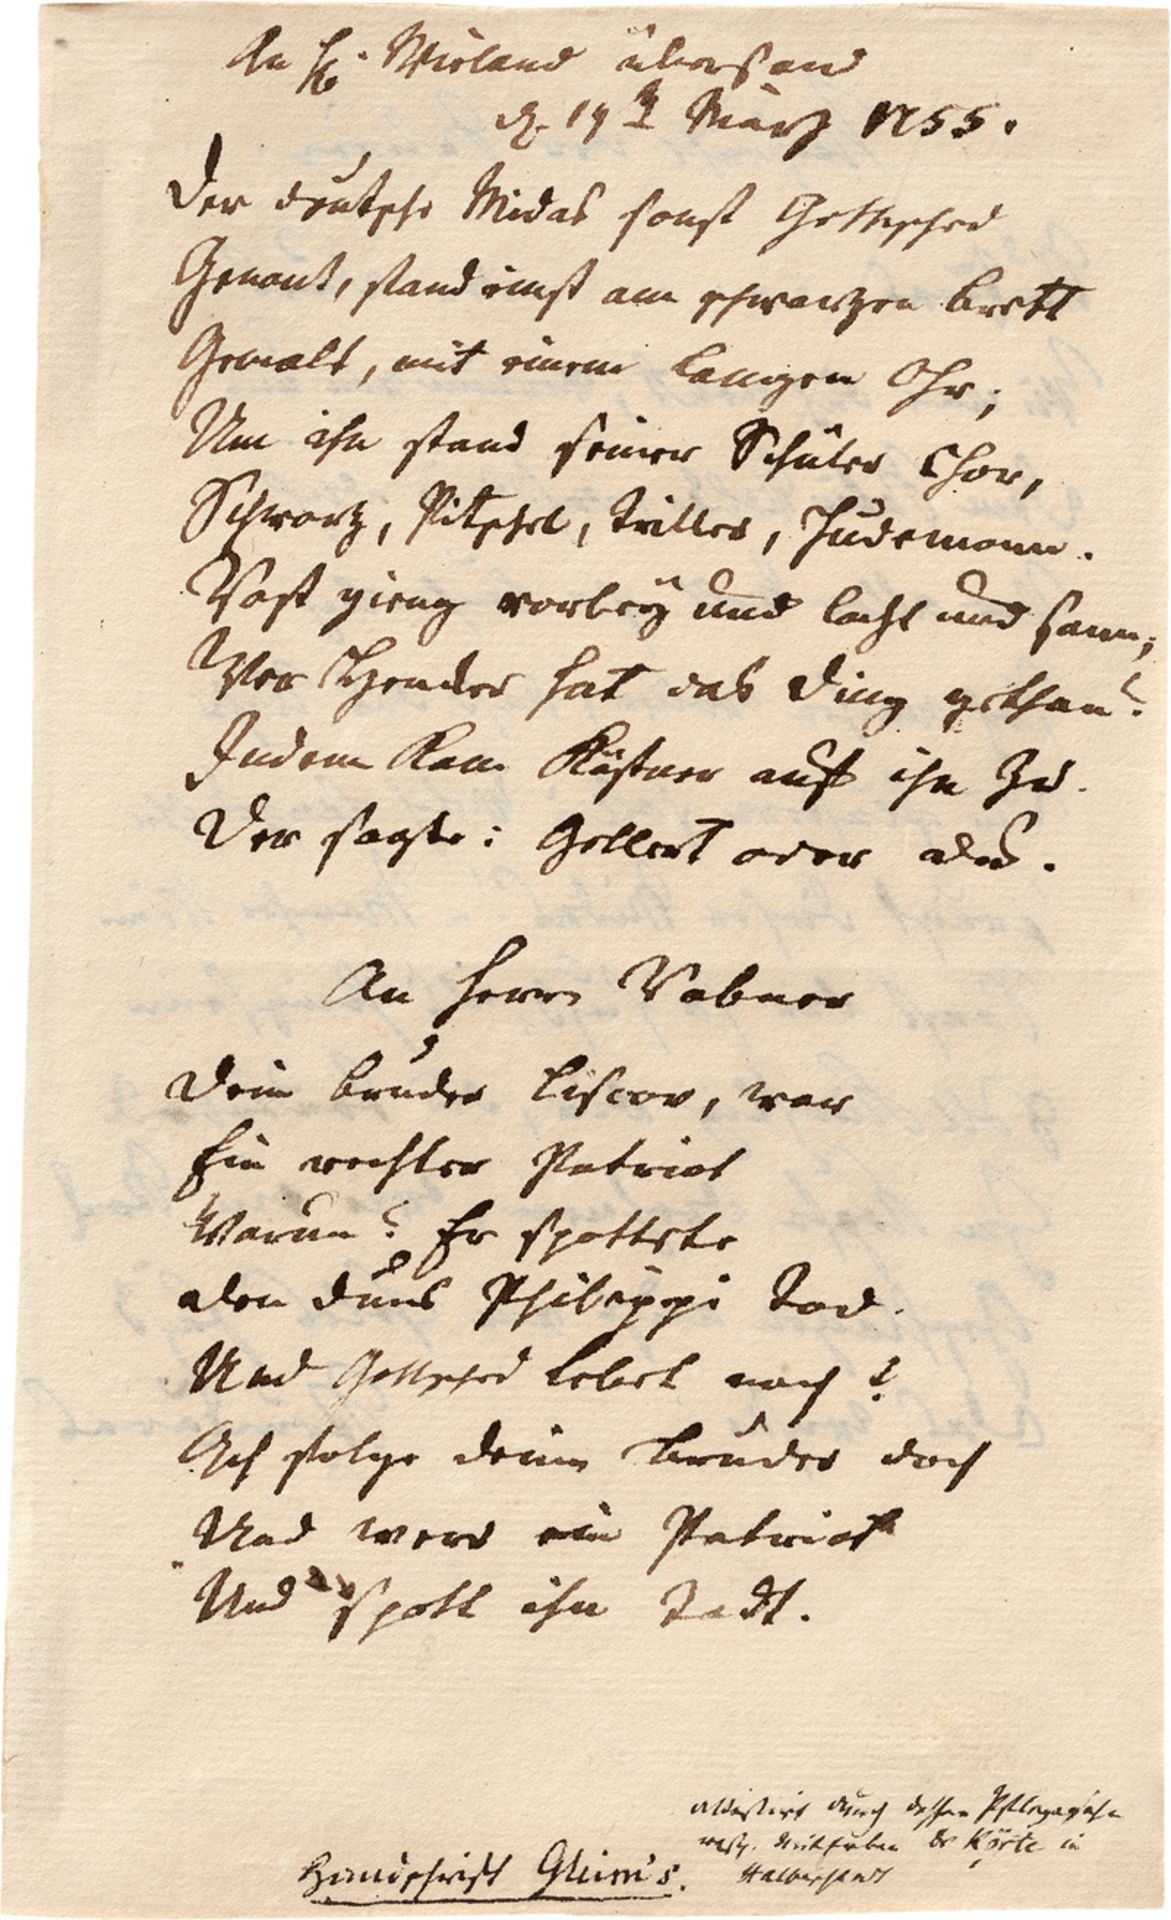 An H. Wieland übersand
d. 19 März 1755.
Der deutsche Midas sonst Gottsched
Genant, stand einst am schwarzen brett
Gemalt, mit einem langen Ohr;
Um ihn stand seiner Schüler Chor,
Schwarz, Pitschel, Triller, Judemann.
Rost gieng vorbey und lacht und sann;
Wer Hencker hat das Ding gethan?
Indem kam Kästner auf ihn zu.
Der sagte: Gellert oder du.
An Herrn Rabner
Dein bruder Liscov, war
Ein rechter Patriot
Warum? Er spottete
den duns Philippi Tod.
Und Gottsched lebet noch?
Ach folge deinem bruder doch
Und werd ein Patriot
Und spott ihn Todt.
Handschrift Gleim's.
attestirt durch dessen Pflegesohn
Dr Körte in
Halberstadt